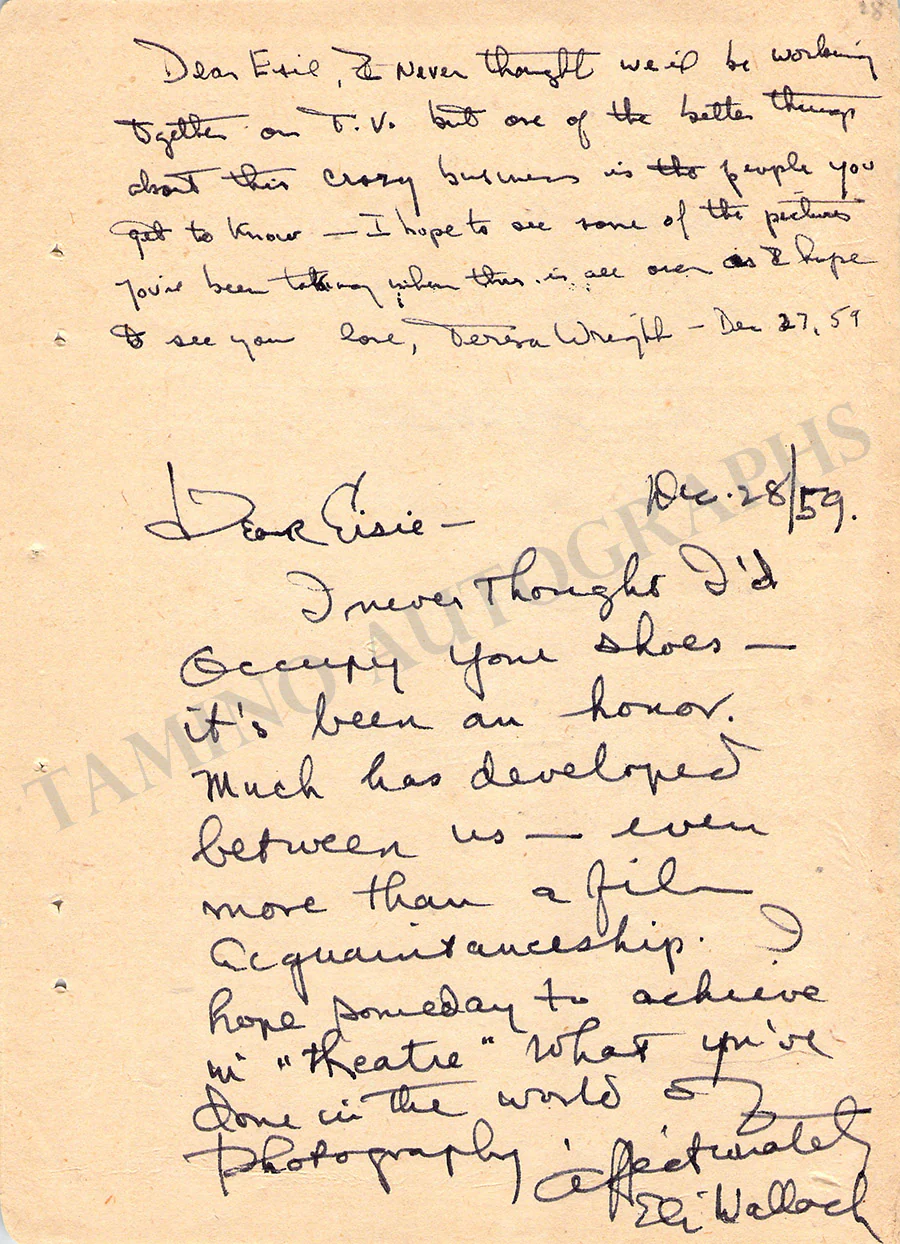 28
Dear Esie, I never thought we'd be working
together on T.V. but one of the better things
about this crazy business is the people you
get to know — I hope to see some of the pictures
you've been taking when this is all over as I hope
to see you love, Teresa Wright - Dec 27, 59
Dec. 28/59.
Dear Eisie —
I never thought I'd
Occupy your shoes —
it's been an honor.
Much has developed
between us — even
more than a film
acquaintanceship. I
hope someday to achieve
in "theatre" what you've
done in the world of
photography affectionately
Eli Wallach
TAMINO AUTOGRAPHS